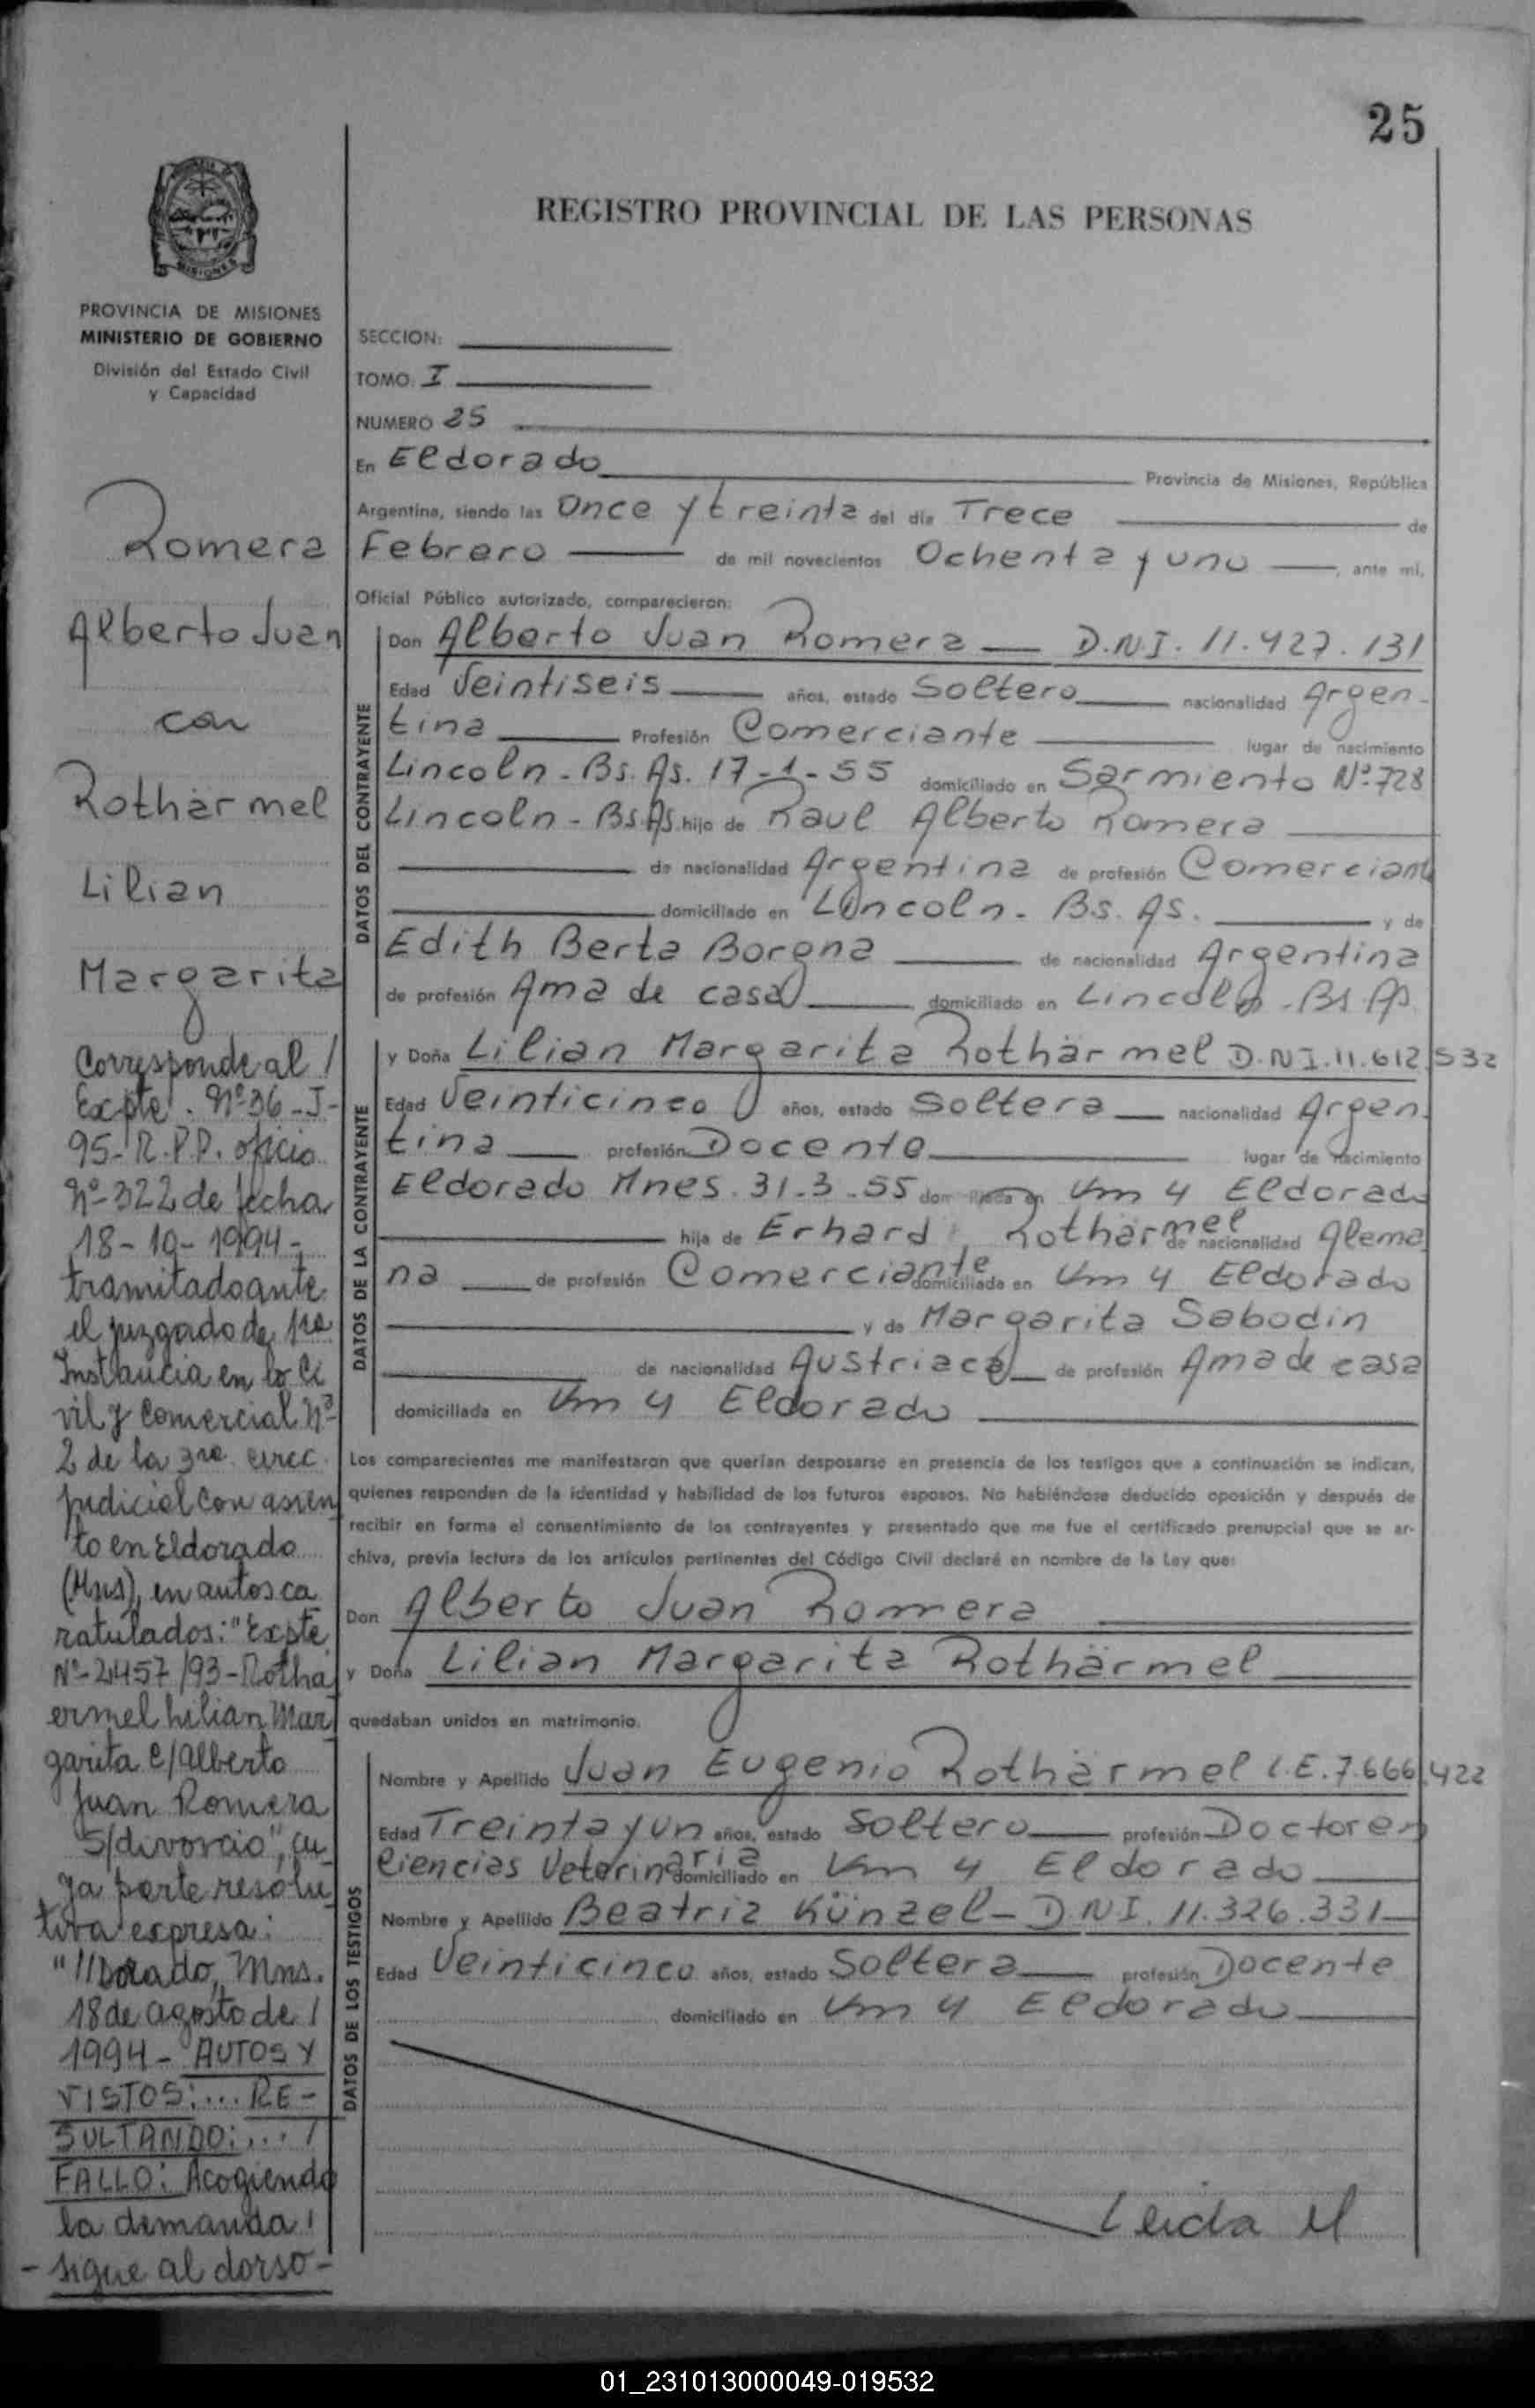 25
REGISTRO PROVINCIAL DE LAS PERSONAS
MISIONES
PROVINCIA DE MISIONES
MINISTERIO DE GOBIERNO
División del Estado Civil
y Capacidad
Romera
Alberto Juan
con
Rothärmel
Lilian
Margarita
Corresponde al /
Expte. Nº 36-J-
95-R.P.P. oficio
Nº-322 de fecha
18-10-1994-
tramitado ante
el juzgado de 1ra
Instancia en lo Ci
vil y Comercial Nº
2 de la 3ra. circ.
judicial con asien
to en Eldorado
(Mns), en autos ca
ratulados: "Expte
Nº-2457/93-Rotha
ermel Lilian Mar
garita c/Alberto
Juan Romera
S/divorcio", cu
ya parte resolu
tiva expresa:
"//Dorado, Mns.
18 de agosto de /
1994- AUTOS Y
VISTOS:... RE-
SULTANDO:... /
FALLO: Acogiendo
la demanda /
- sigue al dorso -
SECCION:
TOMO I
NUMERO 25
En Eldorado Provincia de Misiones, República
Argentina, siendo las Once y treinta del día Trece de
Febrero de mil novecientos Ochenta y uno, ante mí,
Oficial Público autorizado, comparecieron:
DATOS DEL CONTRAYENTE
Don Alberto Juan Romera — D.N.I. 11.427.131
Edad Veintiseis años, estado Soltero nacionalidad Argen-
tina Profesión Comerciante lugar de nacimiento
Lincoln - Bs. As. 17-1-55 domiciliado en Sarmiento Nº 728
Lincoln - Bs. As. hijo de Raul Alberto Romera
de nacionalidad Argentina de profesión Comerciante
domiciliado en Lincoln - Bs. As. y de
Edith Berta Borgna de nacionalidad Argentina
de profesión Ama de casa domiciliado en Lincoln - Bs As.
DATOS DE LA CONTRAYENTE
y Doña Lilian Margarita Rothärmel D.N.I. 11.612.532
Edad Veinticinco años, estado Soltera nacionalidad Argen-
tina profesión Docente lugar de nacimiento
Eldorado Mnes. 31-3-55 domiciliada en Km 4 Eldorado
hija de Erhard Rothärmel de nacionalidad Alema
na de profesión Comerciante domiciliada en Km 4 Eldorado
y de Margarita Sabodin
de nacionalidad Austriaca de profesión Ama de casa
domiciliada en Km 4 Eldorado
Los comparecientes me manifestaron que querían desposarse en presencia de los testigos que a continuación se indican,
quienes responden de la identidad y habilidad de los futuros esposos. No habiéndose deducido oposición y después de
recibir en forma el consentimiento de los contrayentes y presentado que me fue el certificado prenupcial que se ar-
chiva, previa lectura de los artículos pertinentes del Código Civil declaré en nombre de la Ley que:
Don Alberto Juan Romera
y Doña Lilian Margarita Rothärmel
quedaban unidos en matrimonio.
DATOS DE LOS TESTIGOS
Nombre y Apellido Juan Eugenio Rothärmel L.E. 7.666.422
Edad Treinta y un años, estado Soltero profesión Doctor en
Ciencias Veterinaria domiciliado en Km 4 Eldorado
Nombre y Apellido Beatriz Künzel - D.N.I. 11.326.331
Edad Veinticinco años, estado Soltera profesión Docente
domiciliado en Km 4 Eldorado
Leida el
01_231013000049-019532